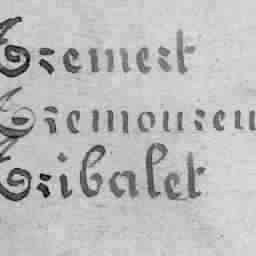 Tremert
Tremoureu
Tribalet